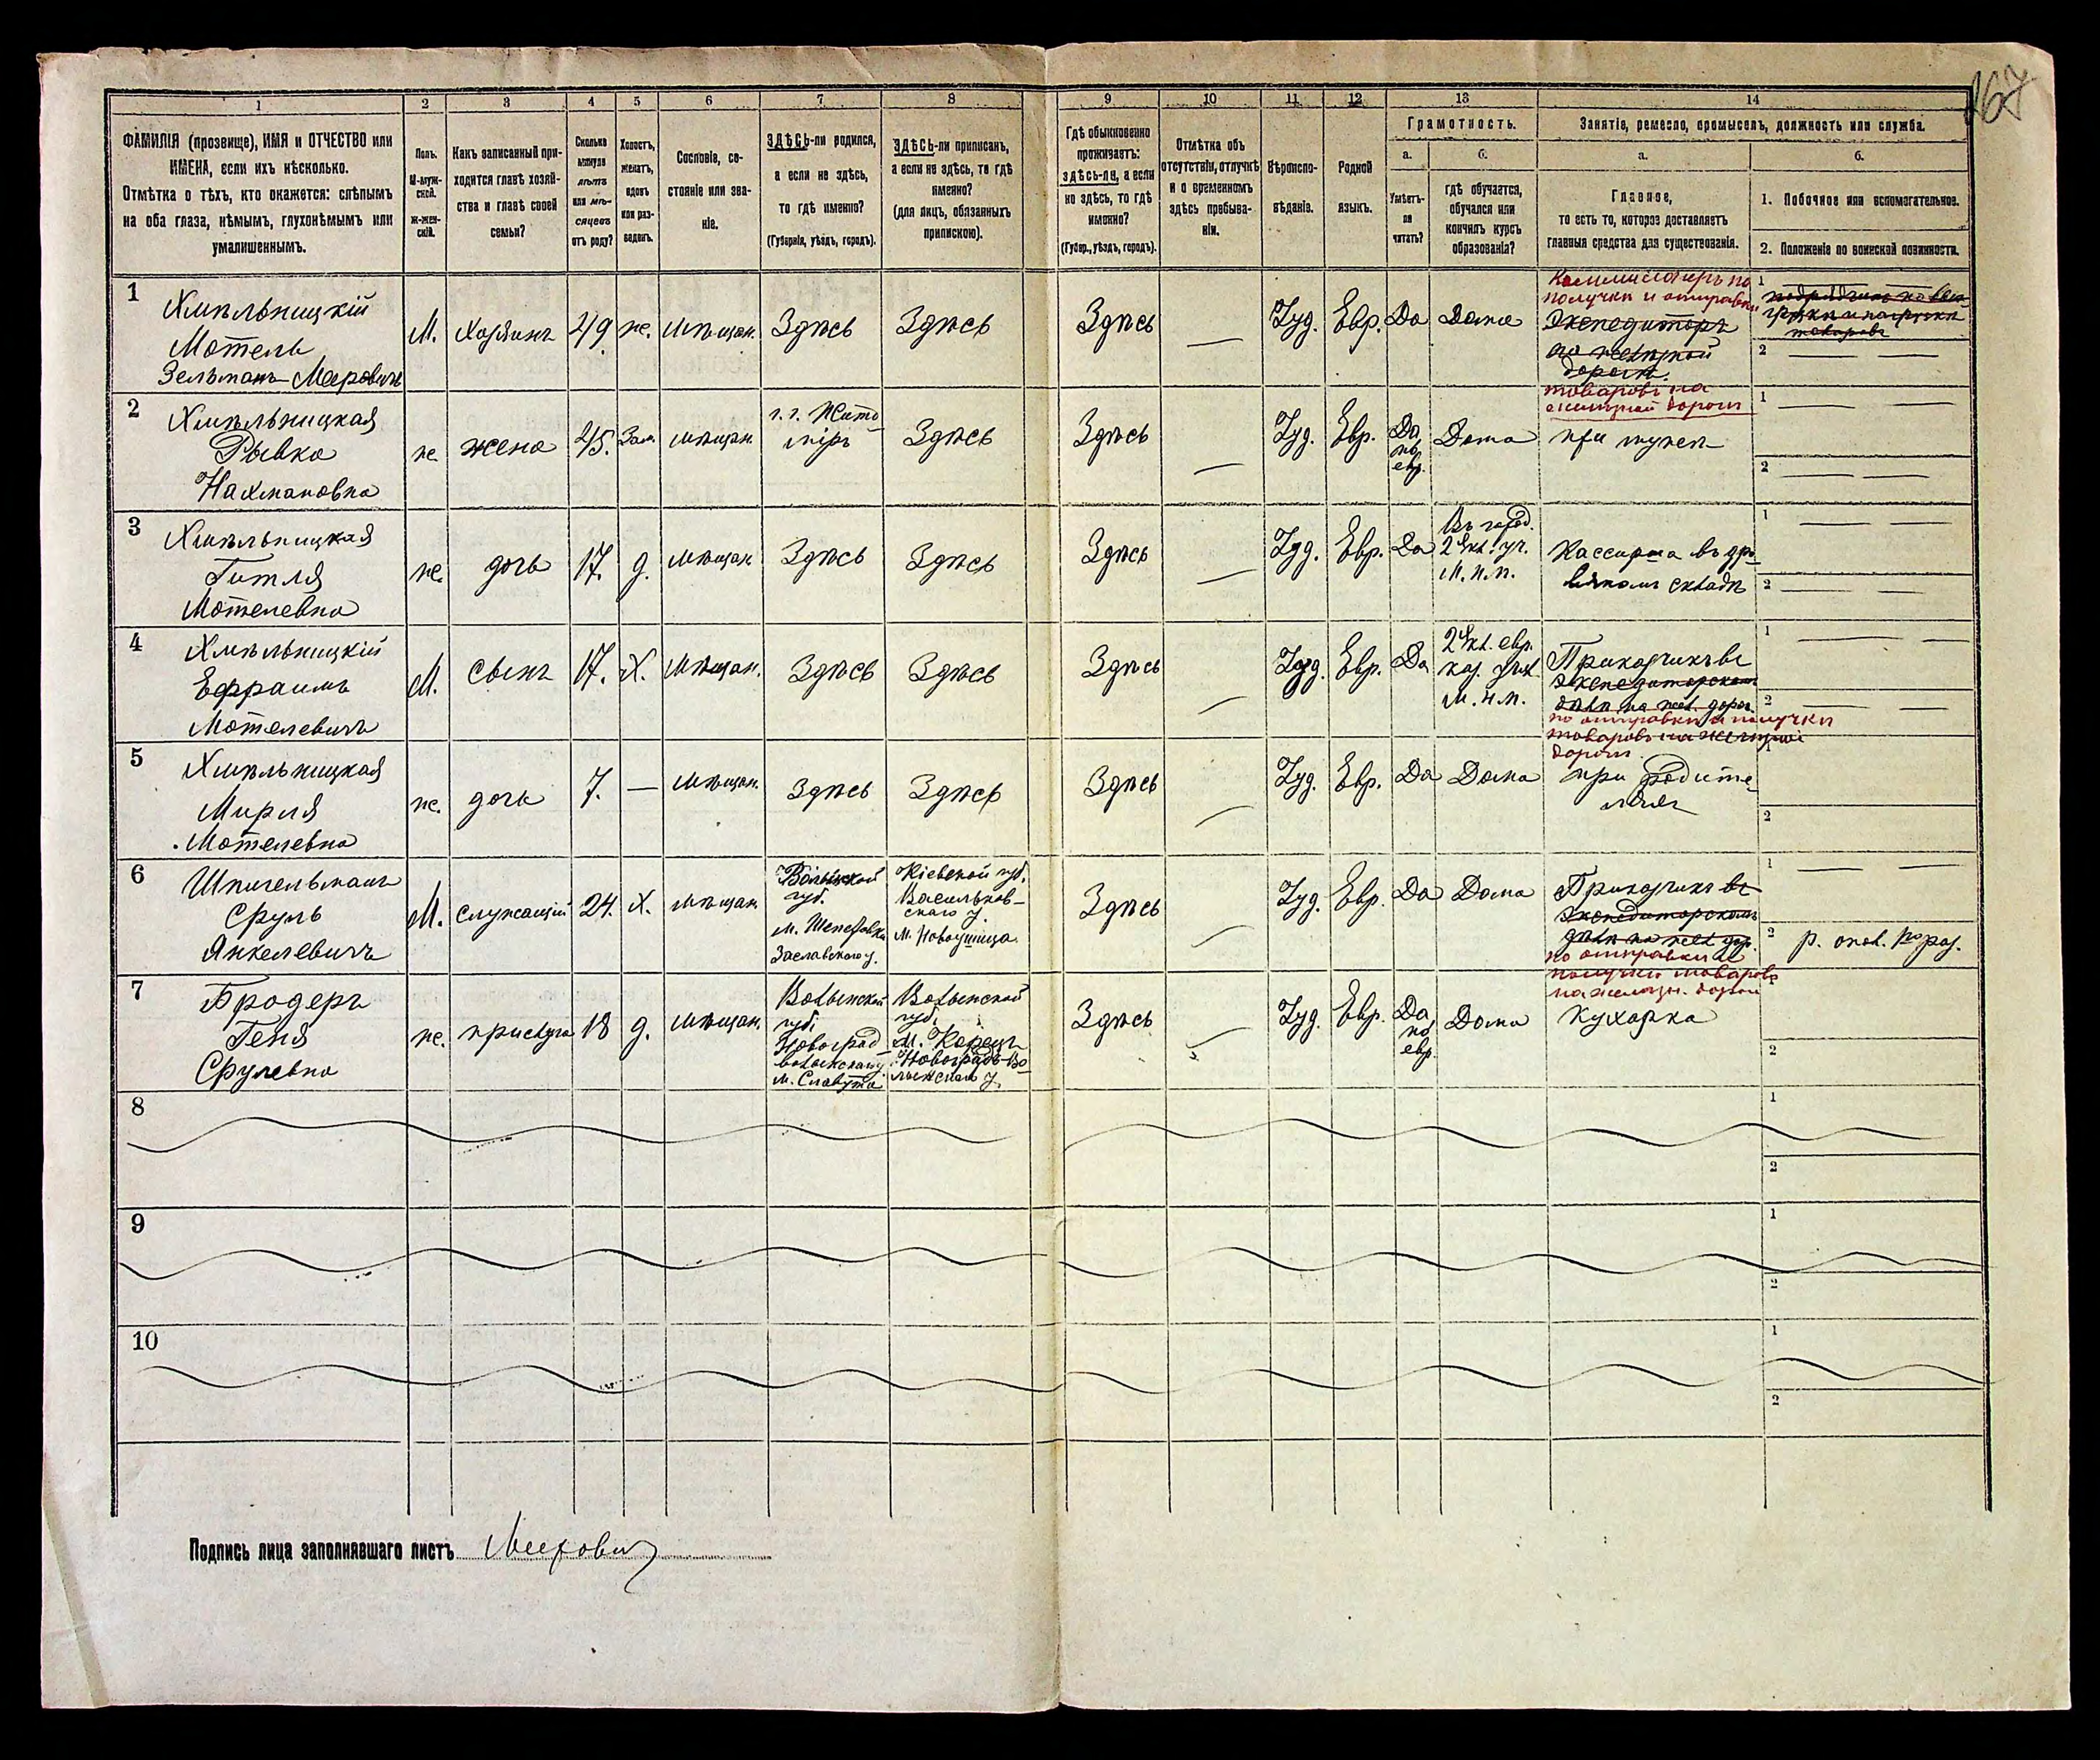 167
1
2
3
4
5
6
7
8
9
10
11
12
13
14
ФАМИЛІЯ (прозвище), ИМЯ и ОТЧЕСТВО или
ИМЕНА, если ихъ нѣсколько.
Отмѣтка о тѣхъ, кто окажется: слѣпымъ
на оба глаза, нѣмымъ, глухонѣмымъ или
умалишеннымъ.
Полъ.
М-муж-
ской.
ж-жен-
скій.
Какъ записанный при-
ходится главѣ хозяй-
ства и главѣ своей
семьи?
Сколько
минуло
лѣтъ
или мѣ-
сяцевъ
отъ роду?
Холостъ,
женатъ,
вдовъ
или раз-
веденъ.
Сословіе, со-
стояніе или зва-
ніе.
ЗДѢСЬ-ли родился,
а если не здѣсь,
то гдѣ именно?
(Губернія, уѣздъ, городъ).
ЗДѢСЬ-ли приписанъ,
а если не здѣсь, то гдѣ
именно?
(для лицъ, обязанныхъ
припискою).
Гдѣ обыкновенно
проживаетъ:
здѣсь-ли, а если
не здѣсь, то гдѣ
именно?
(Губер., уѣздъ, городъ).
Отмѣтка объ
отсутствіи, отлучкѣ
и о временномъ
здѣсь пребыва-
ніи.
Вѣроиспо-
вѣданіе.
Родной
языкъ.
Грамотность.
а.
Умѣетъ-
ли
читать?
б.
гдѣ обучается,
обучался или
кончилъ курсъ
образованія?
Занятіе, ремесло, промыселъ, должность или служба.
а.
Главное,
то есть то, которое доставляетъ
главныя средства для существованія.
б.
1. Побочное или вспомогательное.
2. Положеніе по воинской повинности.
1
Хмѣльницкій
Мотель
Зельманъ-Меровичъ
М.
Хозяинъ
49
же.
мѣщан.
Здѣсь
Здѣсь
Здѣсь
Іуд.
Евр.
Да
Дома
Коммиссіонеръ по
получки и отправки
Экспедиторъ
на желѣзной
дорогѣ.
товаровъ на
желѣзной дорогѣ
1
товаровъ
2
2
Хмѣльницкая
Рывка
Нахмановна
же
жена
45.
Зам.
мѣщан.
г. г. Жито
міръ
Здѣсь
Здѣсь
Іуд.
Евр.
Да
по
евр.
Дома
при мужѣ
1
2
3
Хмѣльницкая
Гитля
Мотелевна
же.
дочь
17.
д.
мѣщан.
Здѣсь
Здѣсь
Здѣсь
Іуд.
Евр.
Да
Въ город.
2 кл. уч.
М. н. п.
Кассирша въ дро
вяномъ складѣ
1
2
4
Хмѣльницкій
Ефраимъ
Мотелевичъ
М.
сынъ
17.
Х.
мѣщан.
Здѣсь
Здѣсь
Здѣсь
Іуд.
Евр.
Да
2 кл. евр.
каз. учил.
М. н. п.
Приказчикъ въ
Экспедиторскомъ
дѣлѣ на жел. дорог.
по отправки и получки
товаровъ на желѣзной
дорогѣ
1
2
5
Хмѣльницкая
Мирля
Мотелевна
же.
дочь
7.
—
мѣщан.
Здѣсь
Здѣсь
Здѣсь
Іуд.
Евр.
Да
Дома
при родите
ляхъ
2
6
Шпигельманъ
Сруль
Янкелевичъ
М.
служащій
24.
Х.
мѣщан.
Волынской
губ.
м. Шепетовка
Заславскаго у.
Кіевской губ.
Васильков-
скаго у.
м.
Здѣсь
Іуд.
Евр.
Да
Дома
Приказчикъ въ
Экспедиторскомъ
дѣлѣ на жел. дор.
по отправки и
получки товаровъ
на желѣзн. дороги
1
2
р. опол. 1го раз.
7
Бродеръ
Геня
Срулевна
же.
прислуга
18
д.
мѣщан.
Волынской
губ.
Новоград
волынскаго у.
м. Славута
Волынской
губ.
м. Корецъ
Новоградъ-Во
лынскаго у.
Здѣсь
Іуд.
Евр.
Да
по
евр.
Дома
Кухарка
2
8
1
2
9
1
2
10
1
2
Подпись лица заполнявшаго листъ Меерович